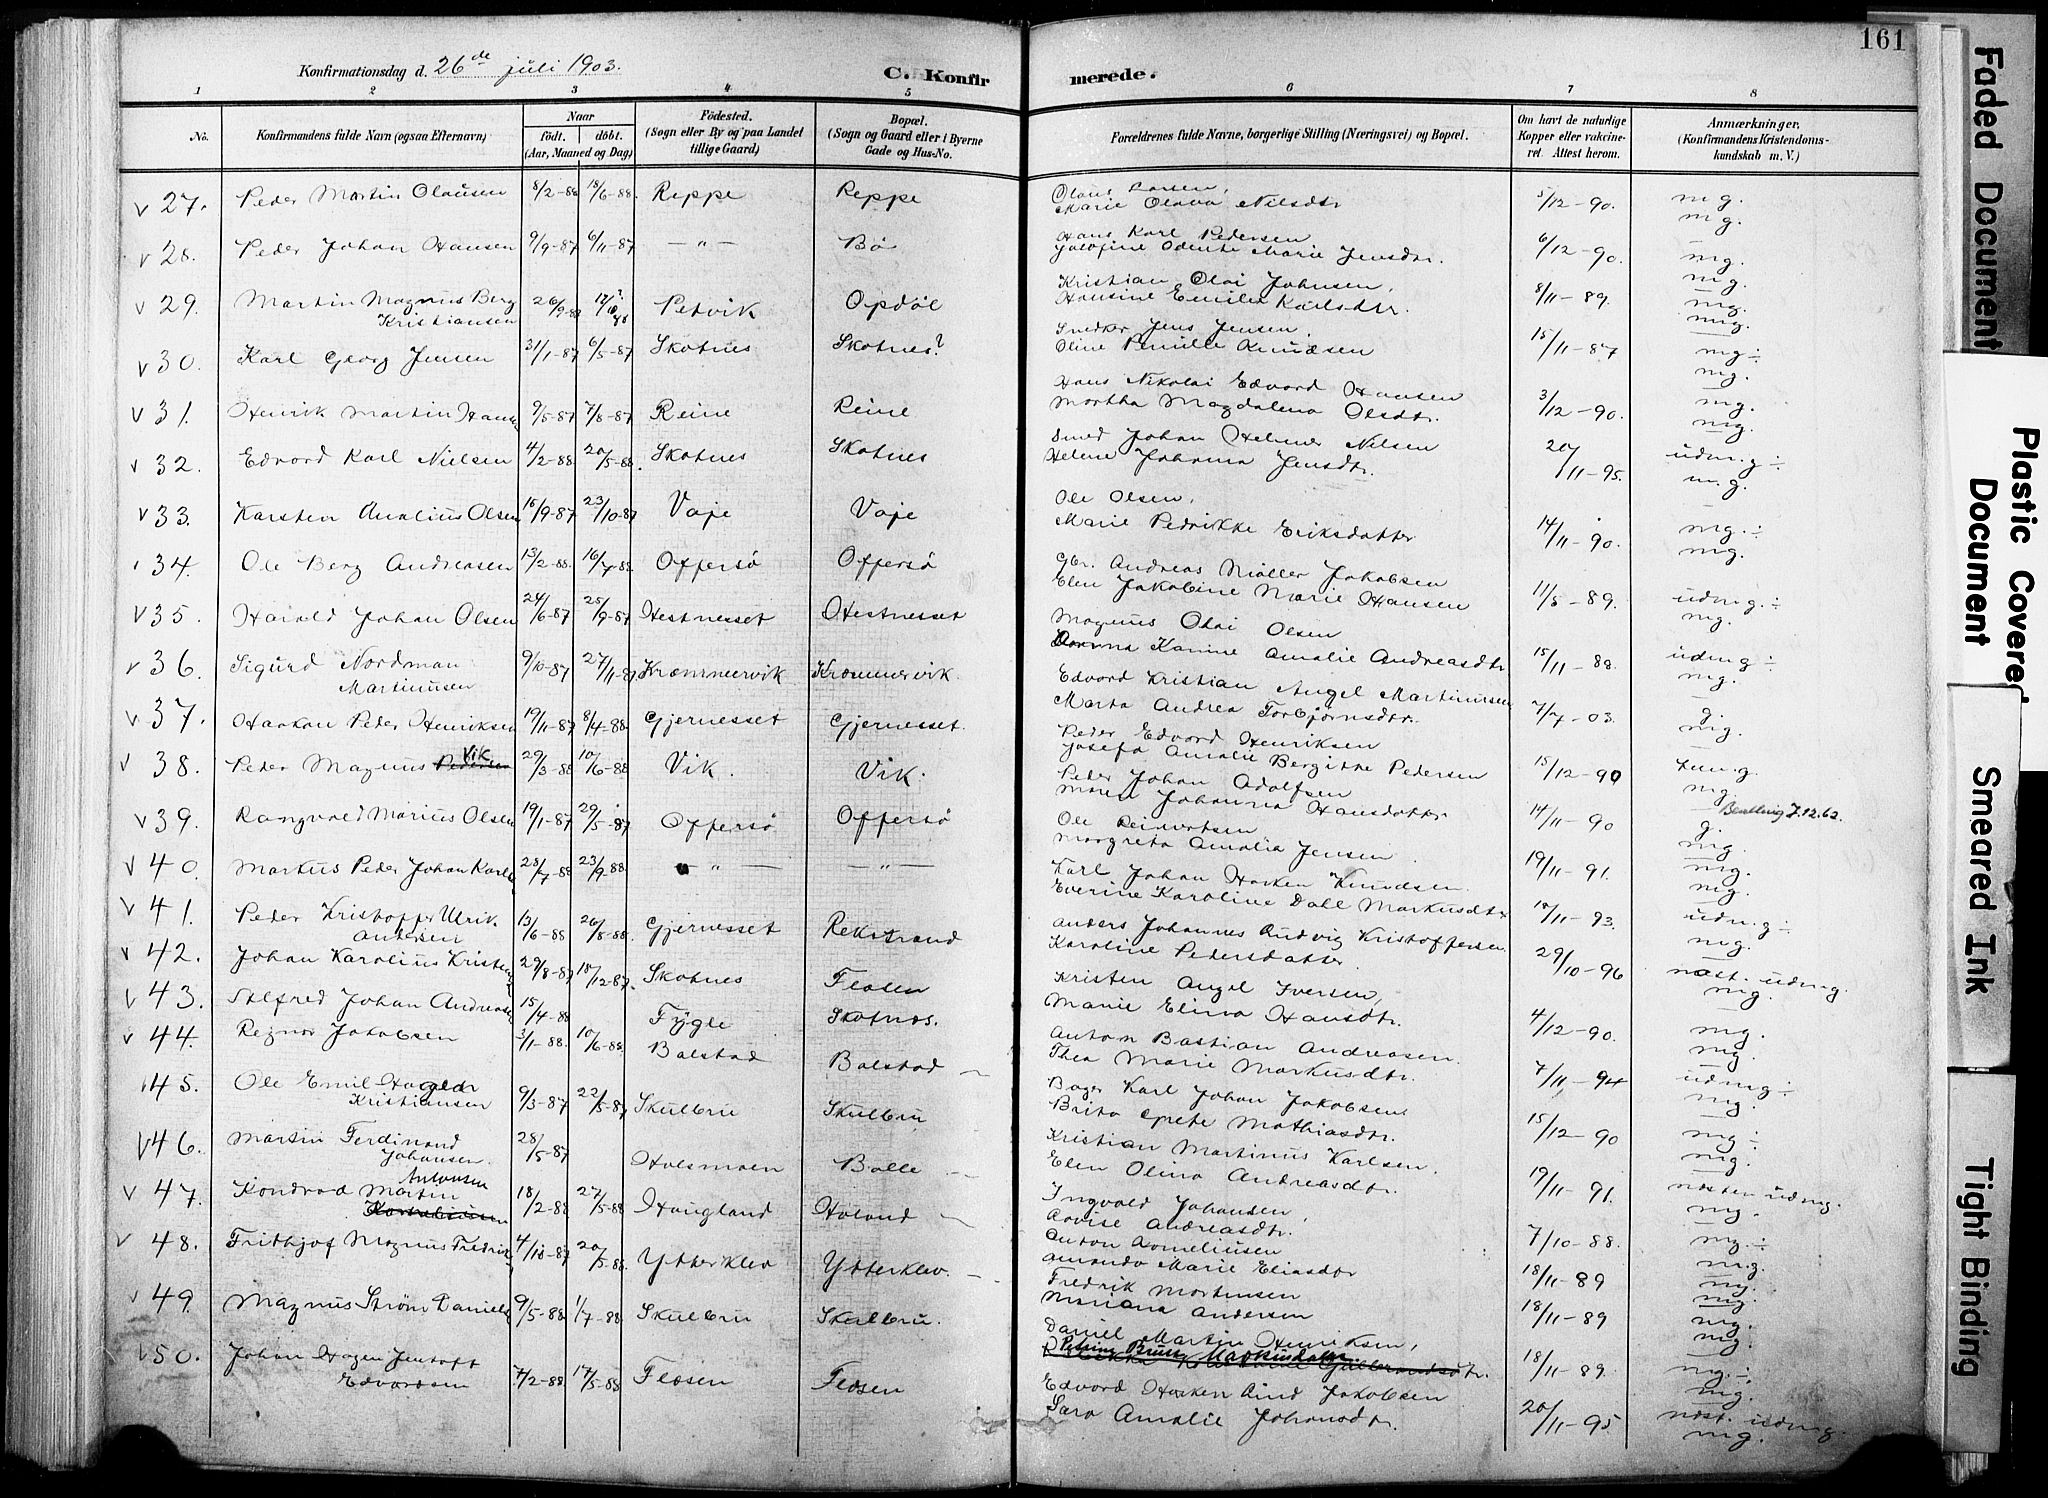 161
Konfirmationsdag d. 26de juli 1903.
C. Konfirmerede.
1 2 3 4 5 6 7 8
No. Konfirmandens fulde Navn (ogsaa Efternavn) Naar født. døbt. (Aar, Maaned og Dag) Fødested. (Sogn eller By og paa Landet tillige Gaard) Bopæl. (Sogn og Gaard eller i Byerne Gade og Hus-No. Forældrenes fulde Navne, borgerlige Stilling (Næringsvei) og Bopæl. Om havt de naturlige Kopper eller vakcineret. Attest herom. Anmærkninger, (Konfirmandens Kristendomskundskab m. V.)
v 27. Peder Martin Olausen 8/2-88 18/6-88. Reppe Reppe Olaus Larsen, 5/12-90. mg.
Marie Olava Nilsdtr mg.
v 28. Peder Johan Hansen 9/9-87 6/11-87 —"— Bø Hans Karl Pedersen 6/12-90. mg.
Josefine Odente Marie Jensdtr. mg.
v 29. Martin Magnus Berg Kristiansen 26/9-88 Petvik Opdøl Kristian Olai Johnsen, 8/11-89. mg.
Hansine Emilie Karlsdtr. mg.
v 30. Karl Georg Jensen 31/1-87 6/5-87 Skotnes Skotnes? Snedker Jens Jensen, 15/11-87 mg÷
Oline Pernille Knudsen mg.
v 31. Henrik Martin Hansen 9/5-87 7/8-87 Reine Reine Hans Nikolai Edvard Hansen 3/12-90. mg.
Martha Magdalena Olsdtr. mg.
v 32. Edvard Karl Nielsen 4/2-88 20/5-88. Skotnes Skotnes Smed Johan Helmer Nilsen 20/11-95. udm.g÷
Helene Johanna Jensdtr. m.g.
v 33. Karsten Analius Olsen 15/9-87 23/10-87 Vaje Vaje Ole Olsen, 14/11-90. mg.÷
Marie Pedrikke Eriksdatter mg.
34. Ole Berg Andreasen 13/2-88. 16/7-88 Offersø Offersø Gbr. Andreas Møller Jakobsen 11/5-89. udmg.÷
Elen Jakobine Marie Hansen mg.
v 35. Harald Johan Olsen 24/6-87 25/9-87 Hestnesset Hestnesset Magnus Olai Olsen 15/11-88. udmg÷
Kanine Amalie Andreasdtr mg.
v 36. Sigurd Nordman Martinusen 9/10-87 27/11-87 Kræmmervik Kræmmervik. Edvard Kristian Angel Martinusen 7/7-03. g.
Marta Andrea Torbjørnsdtr. mg.
v 37. Haakon Peder Henriksen 19/11-87 8/4-88 Gjernesset Gjernesset. Peder Edvard Henriksen 15/12-90 tem.g.
Josefa Amalie Bergitte Pedersen mg.
v 38. Peder Magnus Pedersen Vik 29/3-88 10/6-88 Vik. Vik. Peder Johan Adolfsen 14/11-90 g. 7.12.62.
Maren Johanna Hansdatter mg.
v 39. Rangvald Marius Olsen 19/1-87 29/5-87 Offersø Offersø Ole Reinertsen 19/11-91. mg.
Margreta Amalia Jensen mg.
v 40. Markus Peder Johan Karls 28/7-88 23/9-88. —"— —"— Karl Johan Haaken Knudsen. 18/11-93. udmg÷
Everine Karoline Dall Markusdtr mg.
v 41. Peder Kristoffer Ulrik Andersen 13/6-88 26/8-88. Gjernesset Rekstrand Anders Johannes Ludvig Kristoffersen 29/10-96 næst. udmg.
Karoline Pedersdatter mg.
v 42. Johan Karolius Kristens 29/8-87 18/12-87. Skotnes Flosen Kristen Angel Iversen, 4/12-90. mg.
Marie Elina Hansdtr. mg.
v 43. Alfred Johan Andreas 15/4-88 Fygle Skotnes. Anton Bastian Andreasen. 7/11-94 udmg÷
Thea Marie Markusdtr. mg.
v 44. Regnor Jakobsen 3/1-88. 10/6-88. Balstad Balstad Bager Karl Johan Jakobsen 15/12-90 mg÷
Brita Grete Mathiasdtr. mg.
45. Ole Emil Haraldr Kristiansen 9/3-87 22/5-87 Skulbru Skulbru Kristian Martinus Karlsen. 19/11-91. næsten udmg.
Elen Olina Andreasdtr. mg.
v 46. Martin Ferdinand Johansen. 28/5-87 Holsmoen Balle Ingvald Johansen, 7/10-88. mg.÷
Lovise Andreasdtr. mg.
v 47. Kondrad Martin Antonsen 18/2-88 27/5-88 Haugland Haland Anton Korneliusen 18/11-89 mg.
Amanda Marie Eliasdtr mg.
v 48. Fridthjof Magnus Fredrik 4/10-87 20/5-88. Ytterklev Ytterklev. Fredrik Mortensen 18/11-89 mg.
Mariana Andersen mg.
v 49. Magnus Strøm Daniels 9/5-88 1/7-88 Skulbru Skulbru. Daniel Martin Henriksen, 18/11-89. mg.÷
Petrine Markusdatter mg.
v 50. Johan Hagen Jentoft Edvardsen 7/2-88 17/5-88 Flosen Flosen Edvard Haaken Lind Jakobsen 20/11-95 næst. udmg.
Sara Amalie Johansdtr. mg.
Faded Document
Plastic Covered Document
Smeared Ink
Tight Binding